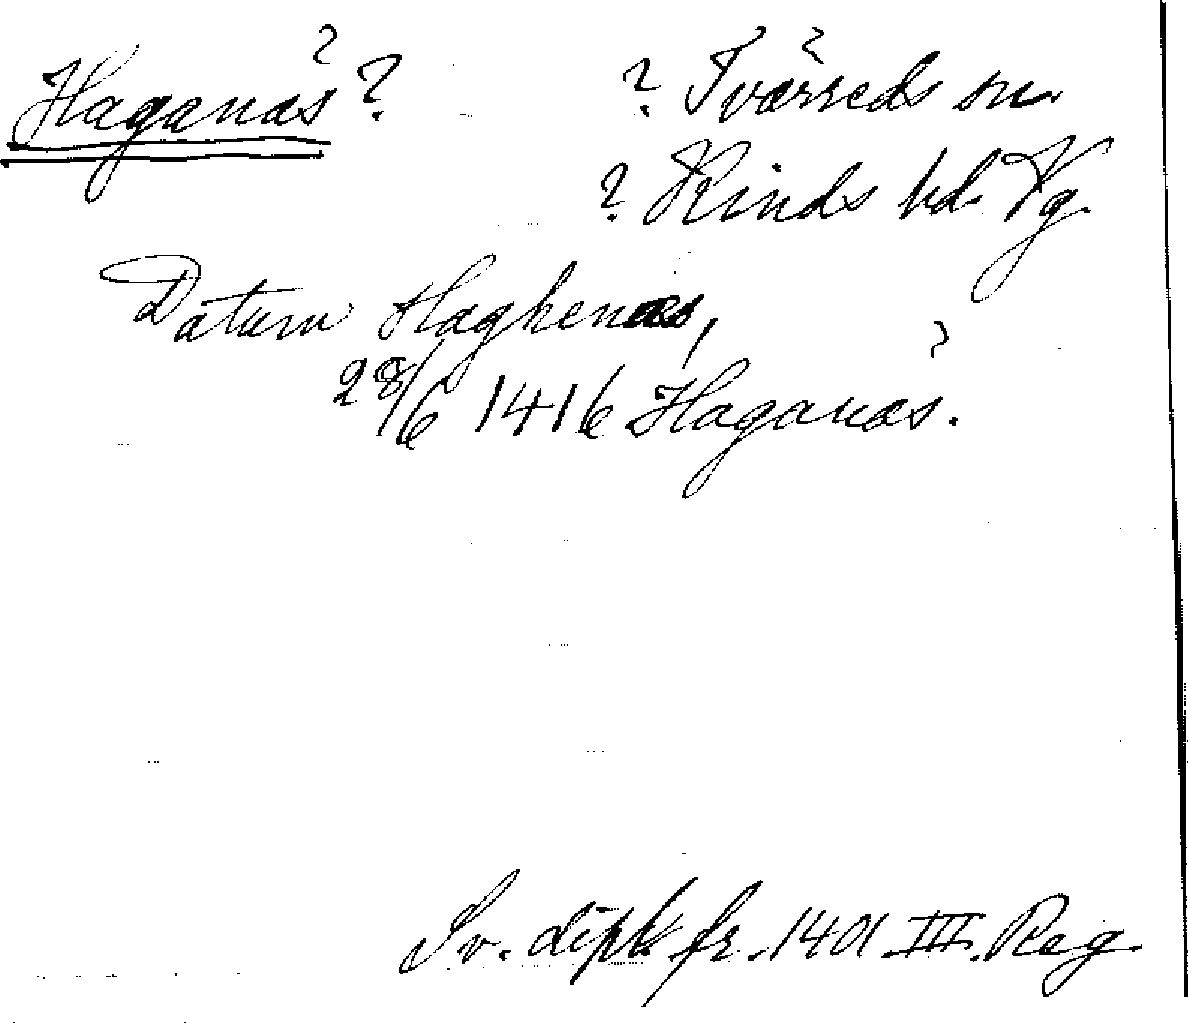 Haganäs? ? ? Tvärreds sn.
? Kinds hd. Vg.
Datum Haghenæs,
28/6 1416 Haganäs. ?
Sv. dipl. fr. 1401 III. Reg.